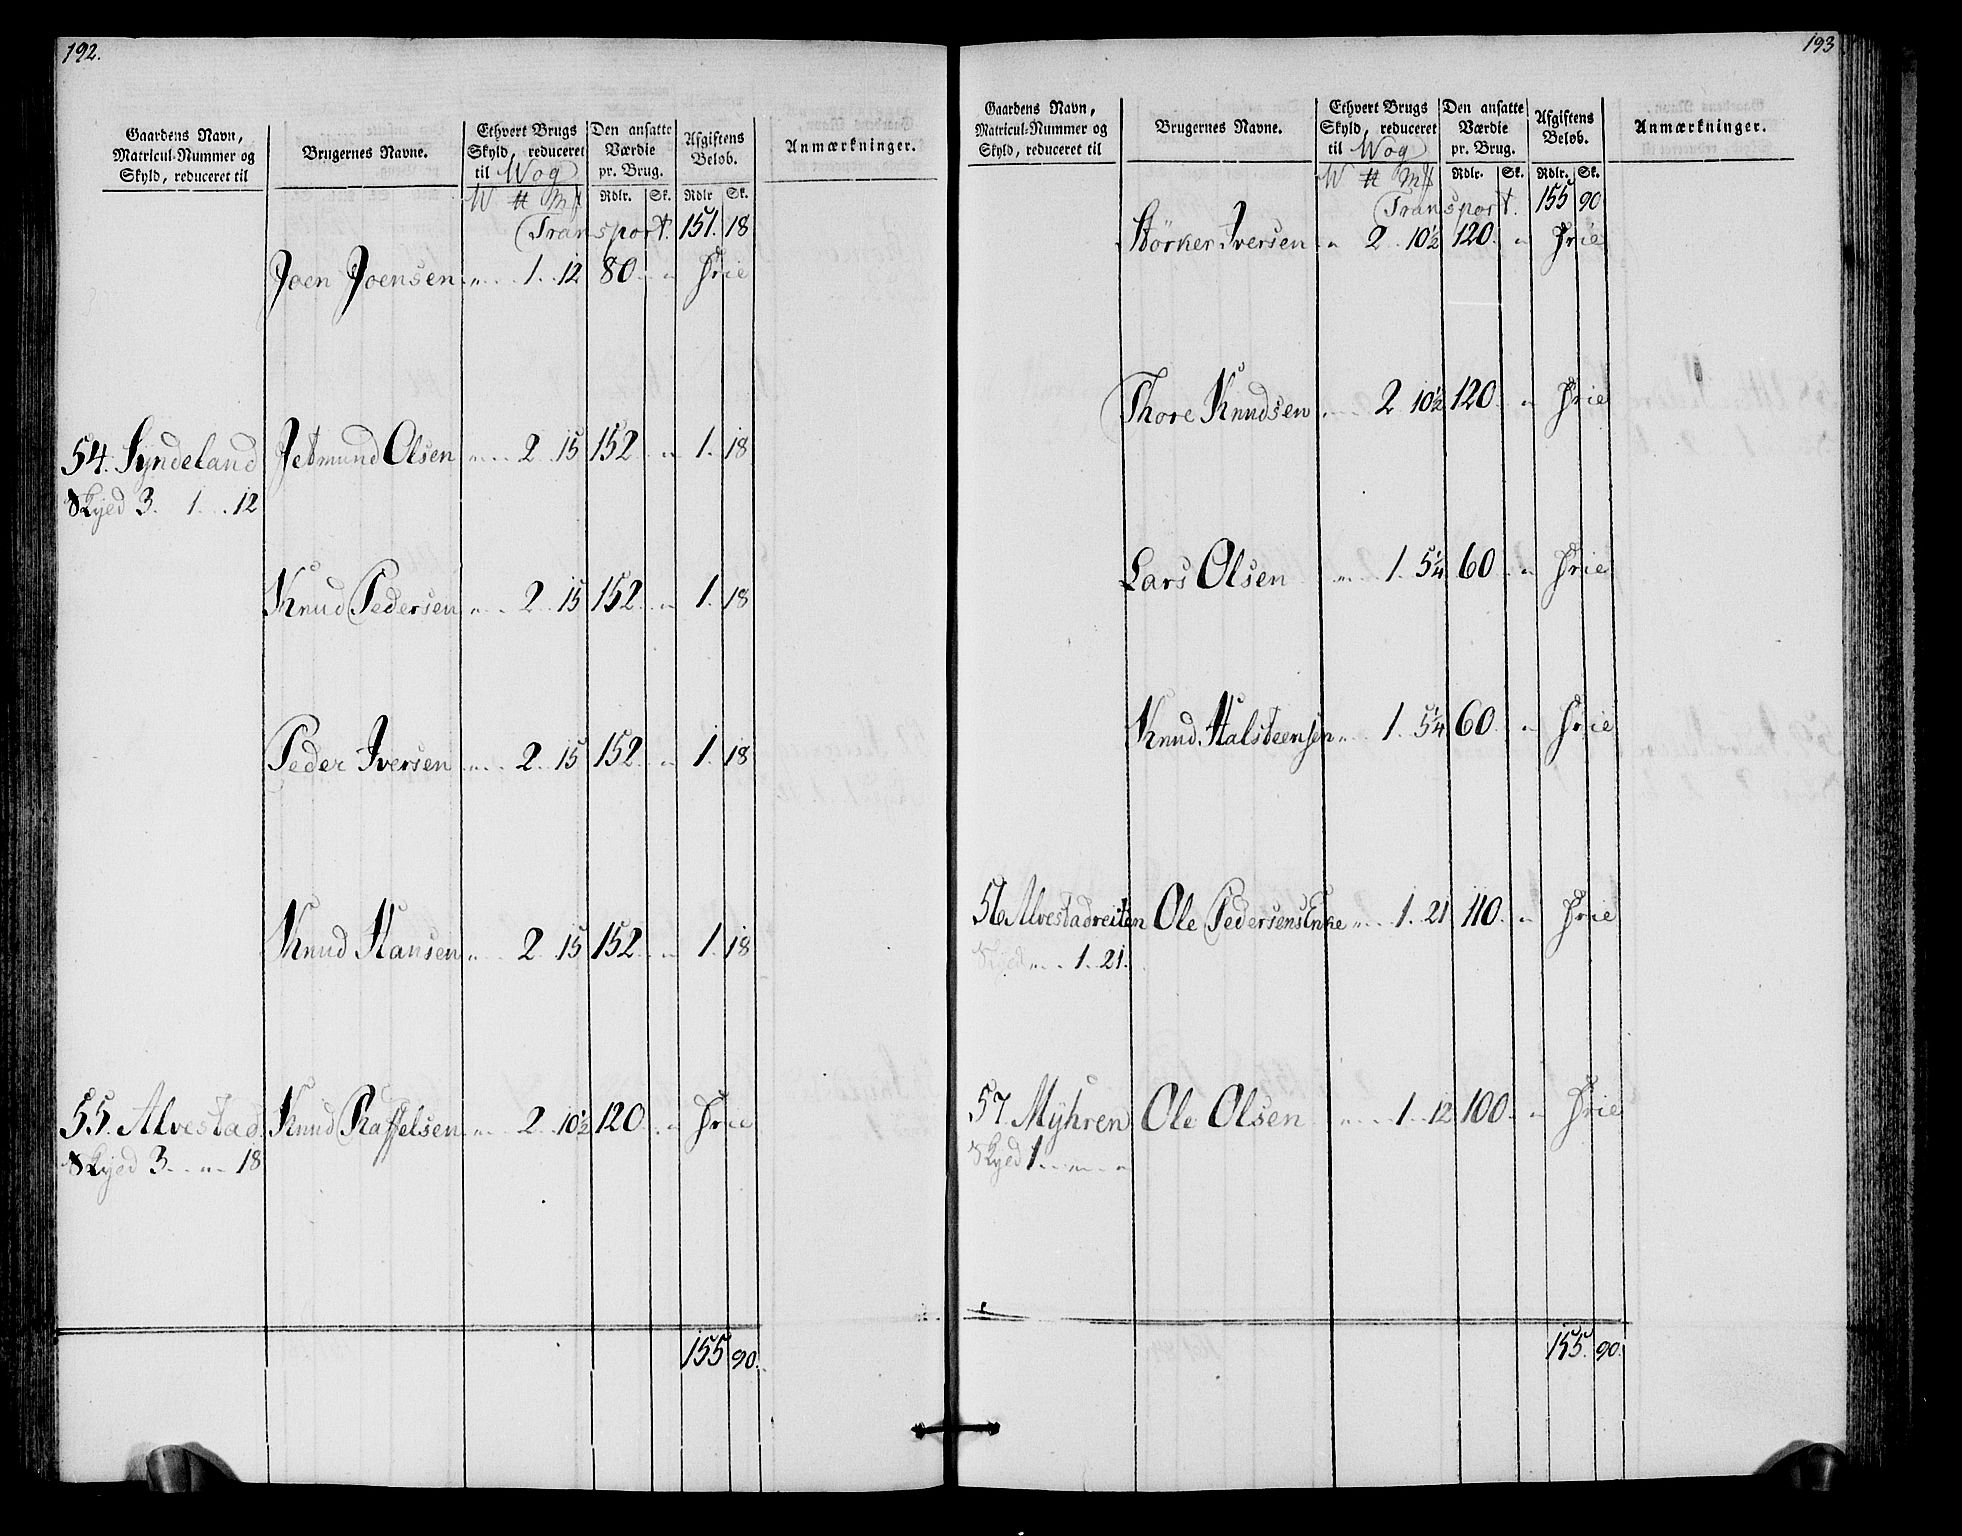 192.
Gaardens Navn, Matricul-Nummer og Skyld, reduceret til | Brugernes Navne. | Ethvert Brugs Skyld, reduceret til Wog | Den ansatte Værdie pr. Brug. | Afgiftens Beløb. | Anmærkninger.
W ℔ Mk | Rdlr. Sk. | Rdlr Sk.
Transport. 151. 18
Joen Joensen „ 1. 12 80 „ Frie
54. Syndeland Jetmund Olsen „ 2 15 152 „ 1. 18
Skyld 3. 1. 12
Knud Pedersen „ 2 15 152 „ 1. 18
Peder Iversen „ 2. 15 152 „ 1. 18
Knud Hansen „ 2 15 152 „ 1. 18
55. Alvestad Knud Raffelsen „ 2 10½ 120 „ Frie
Skyld 3 „ 18
155 90.
193
Gaardens Navn, Matricul-Nummer og Skyld, reduceret til | Brugernes Navne. | Ethvert Brugs Skyld, reduceret til Wog | Den ansatte Værdie pr. Brug. | Afgiftens Beløb. | Anmærkninger.
W ℔ Mk | Rdlr. Sk. | Rdlr. Sk.
Transport. 155 90
Störker Iversen „ 2 10½ 120 „ Frie
Thore Knudsen „ 2 10½ 120 „ Frie
Lars Olsen „ 1. 5¼ 60 „ Frie
Knud Halsteensen „ 1. 5¼ 60 „ Frie
56 Alvestadreiten Ole Pedersens Enke „ 1. 21 110 „ Frie
Skyld „ 1. 21.
57 Myhren Ole Olsen „ 1. 12 100 „ Frie
Skyld 1 „ „
155. 90.